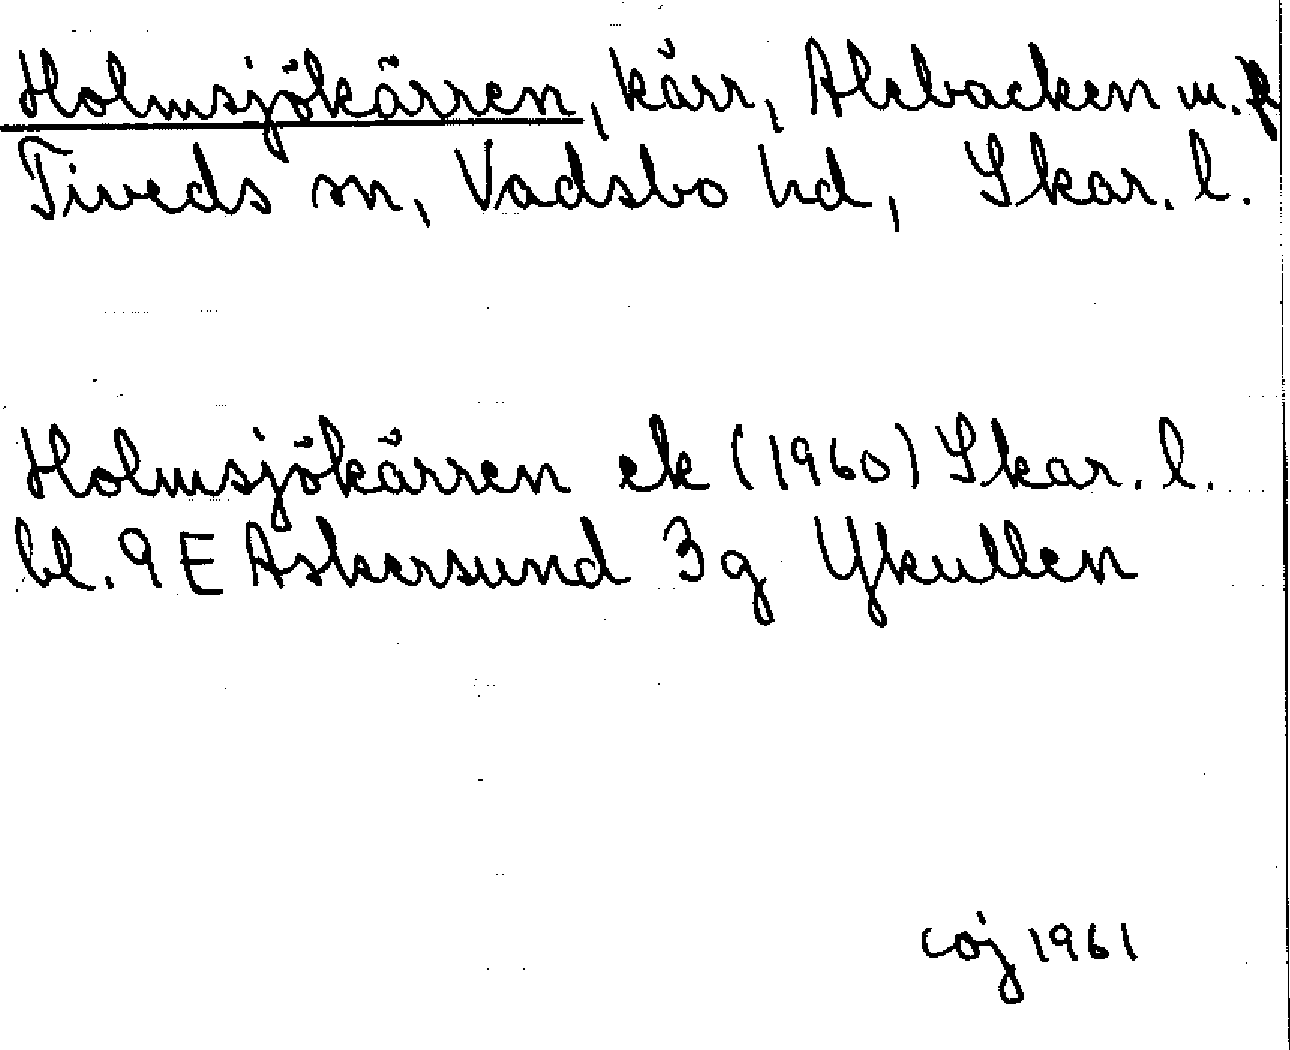 Holmsjökärren, kärr, Alebacken m.fl
Tiveds sn, Vadsbo hd, Skar. l.
Holmsjökärren ek (1960) Skar. l.
bl. 9 E Askersund 3 g Ykullen
coj 1961